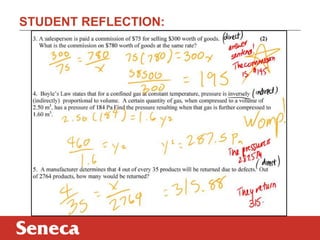 STUDENT REFLECTION:
3. A salesperson is paid a commission of $75 for selling $300 worth of goods. (direct) (2)
What is the commission on $780 worth of goods at the same rate? answer
300/75 = 780/x 75(780) = 300x sentence
58500/300 = 195 The commission is $195
4. Boyle's Law states that for a confined gas at constant temperature, pressure is inversely (indirect)
(indirectly) proportional to volume. A certain quantity of gas, when compressed to a volume of
2.50 m³, has a pressure of 184 Pa Find the pressure resulting when that gas is further compressed to
1.60 m³. 2.50(184) = 1.6 y2 Womp!
460/1.6 = y2 y2 = 287.5 Pa The pressure
5. A manufacturer determines that 4 out of every 35 products will be returned due to defects. Out (direct)
of 2764 products, how many would be returned?
4/35 = x/2769 = 315.88 They return
315.
Seneca